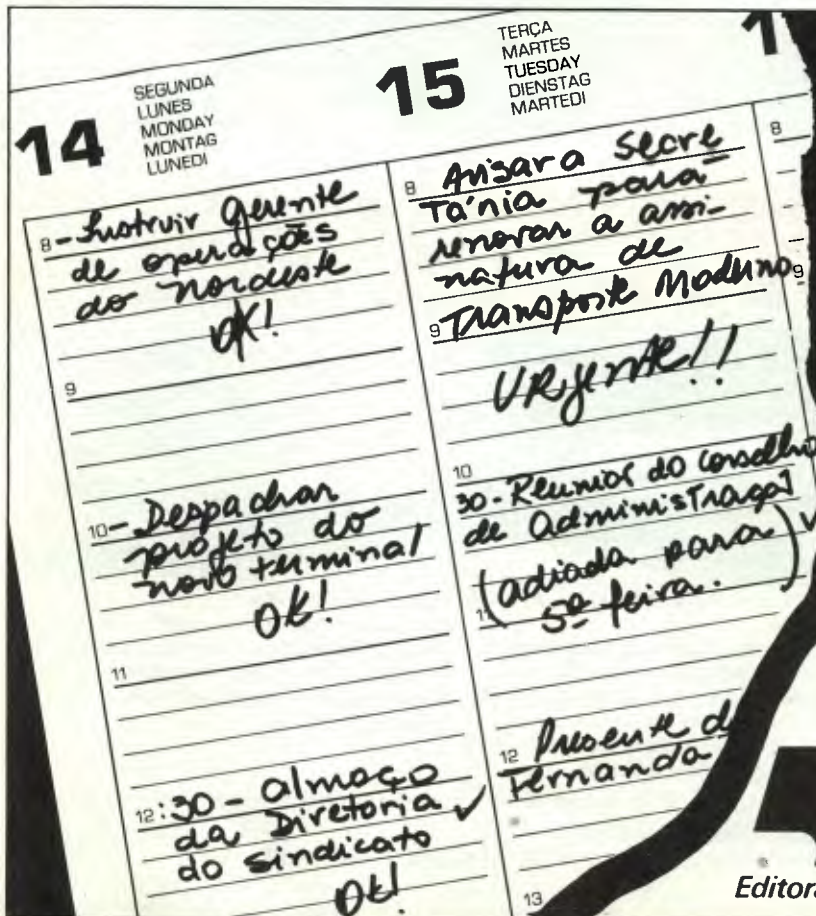 14
SEGUNDA
LUNES
MONDAY
MONTAG
LUNEDI
8 - Instruir gerente
de operações
do nordeste
OK!
9
10 - Despachar
projeto do
novo terminal
OK!
11
12:30 - almoço
da Diretoria ✓
do sindicato
OK!
15
TERÇA
MARTES
TUESDAY
DIENSTAG
MARTEDI
8 Avisar a secre
tánia para
renovar a assi-
natura de
9 Transporte Moderno
URgente!!
10
30 - Reunião do conselho
de Administração
(adiada para) ✓
11 5ª feira.
12 Presente d
Fernanda
13
1
8
9
Editora